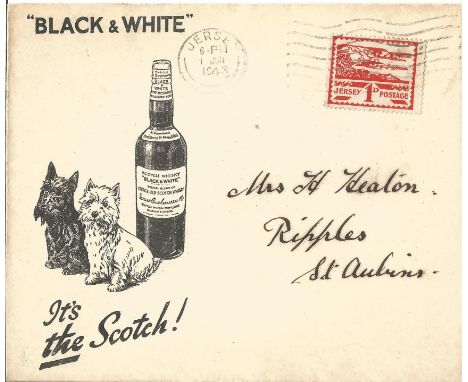 "BLACK & WHITE"
JERSEY
6-PM
1 JUN
1943
JERSEY 1D POSTAGE
SCOTCH WHISKY
"BLACK & WHITE"
Mrs H Heaton.
Ripples
St Aubins.
It's
the Scotch!